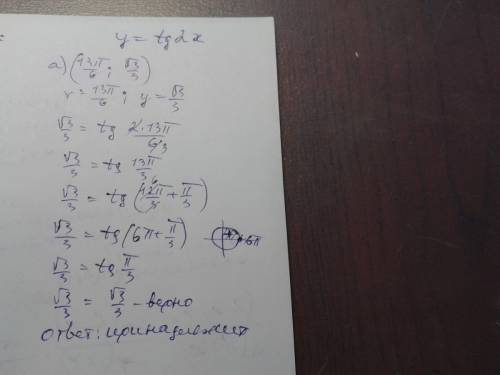 y = tg 2x
а) (13π/6; √3/3)
x = 13π/6; y = √3/3
√3/3 = tg 2·13π/6 3
√3/3 = tg 13π/3
√3/3 = tg (12π/3 + π/3)
√3/3 = tg (6π + π/3) 6π
√3/3 = tg π/3
√3/3 = √3/3 - верно
ответ: принадлежит